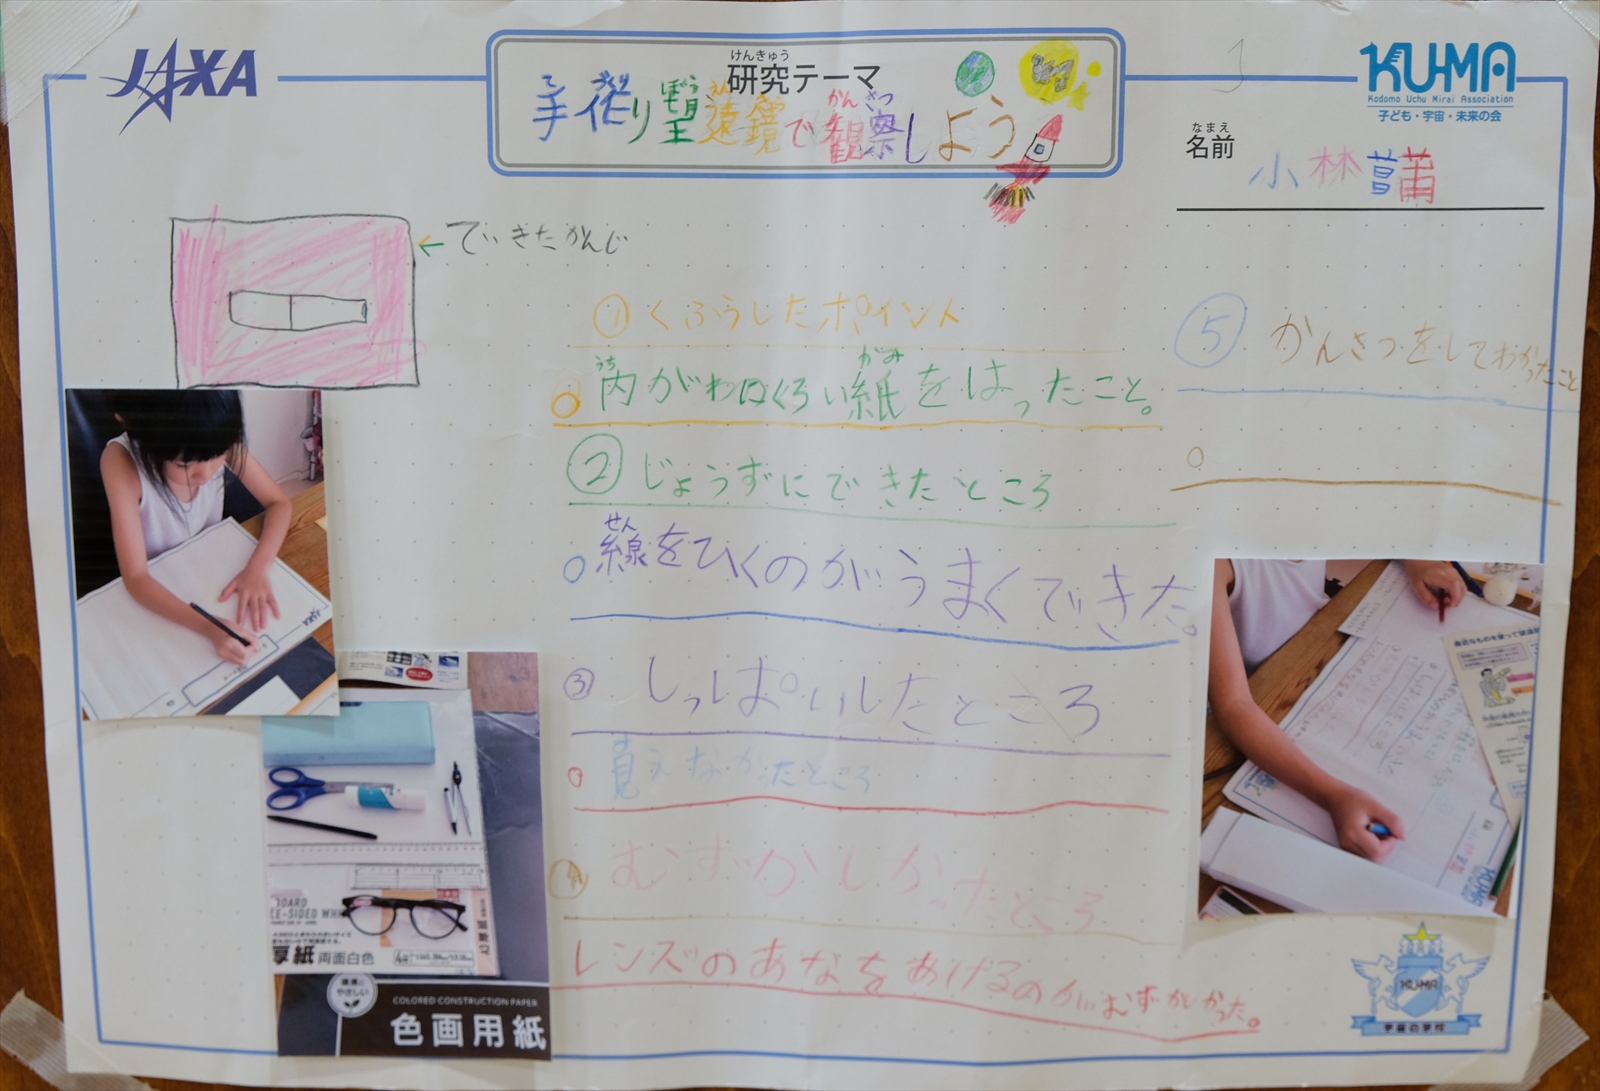 JAXA
けんきゅう
研究テーマ
手作り望遠鏡で観察しよう
かんさつ
KUMA
Kodomo Uchu Mirai Association
子ども・宇宙・未来の会
なまえ
名前
小林菖蒲
←できたかんじ
① くふうしたポイント
うち がみ
内がわにくろい紙をはったこと。
② じょうずにできたところ
せん
線をひくのがうまくできた。
③ しっぱいしたところ
見えなかったところ
④ むずかしかったところ
レンズのあなをあけるのがむずかしかった。
⑤ かんさつをしてわかったこと
JAXA
厚紙 両面白色
環境にやさしい
COLORED CONSTRUCTION PAPER
色画用紙
KUMA
KUMA
宇宙の学校